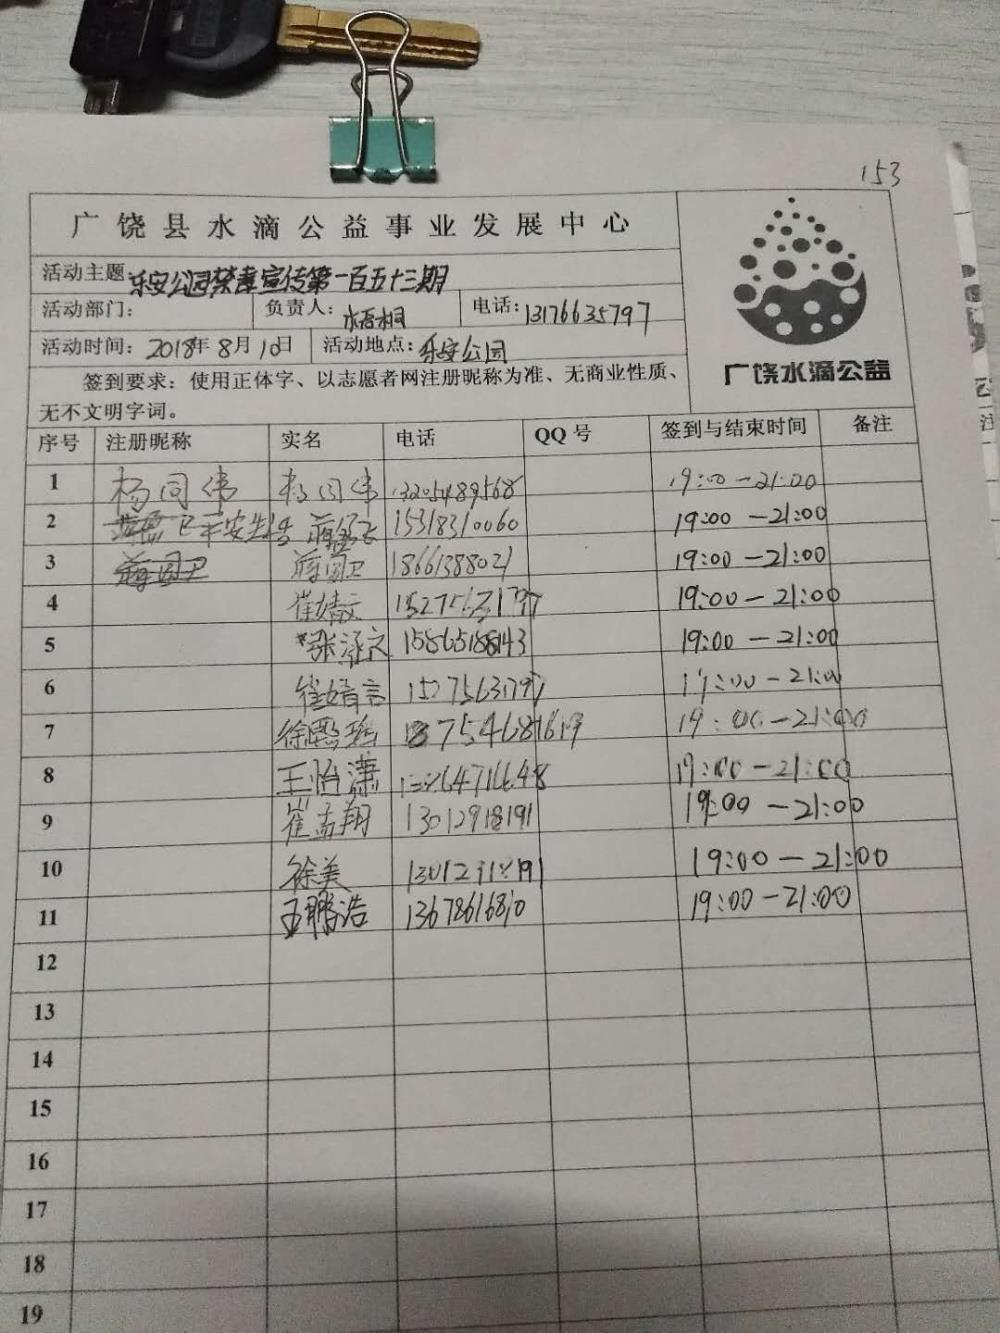 153
广饶县水滴公益事业发展中心
活动主题 乐安公园禁毒宣传第一百五十三期
活动部门： 负责人：梧桐 电话：13176635797
活动时间：2018年8月10日 活动地点：乐安公园
广饶水滴公益
签到要求：使用正体字、以志愿者网注册昵称为准、无商业性质、
无不文明字词。
序号 注册昵称 实名 电话 QQ号 签到与结束时间 备注
1 杨同伟 杨同伟 13205489568 19:00－21:00
2 平安生活 15318310060 19:00－21:00
3 蒋国卫 蒋国卫 18661388021 19:00－21:00
4 崔婧文 19:00－21:00
5 张涵文 19:00－21:00
6 崔婧言 15275631797 19:00－21:00
7 18754681619 19:00－21:00
8 王怡潇 19:00－21:00
9 崔孟翔 13012918191 19:00－21:00
10 徐美 19:00－21:00
11 王鹏浩 19:00－21:00
12
13
14
15
16
17
18
19